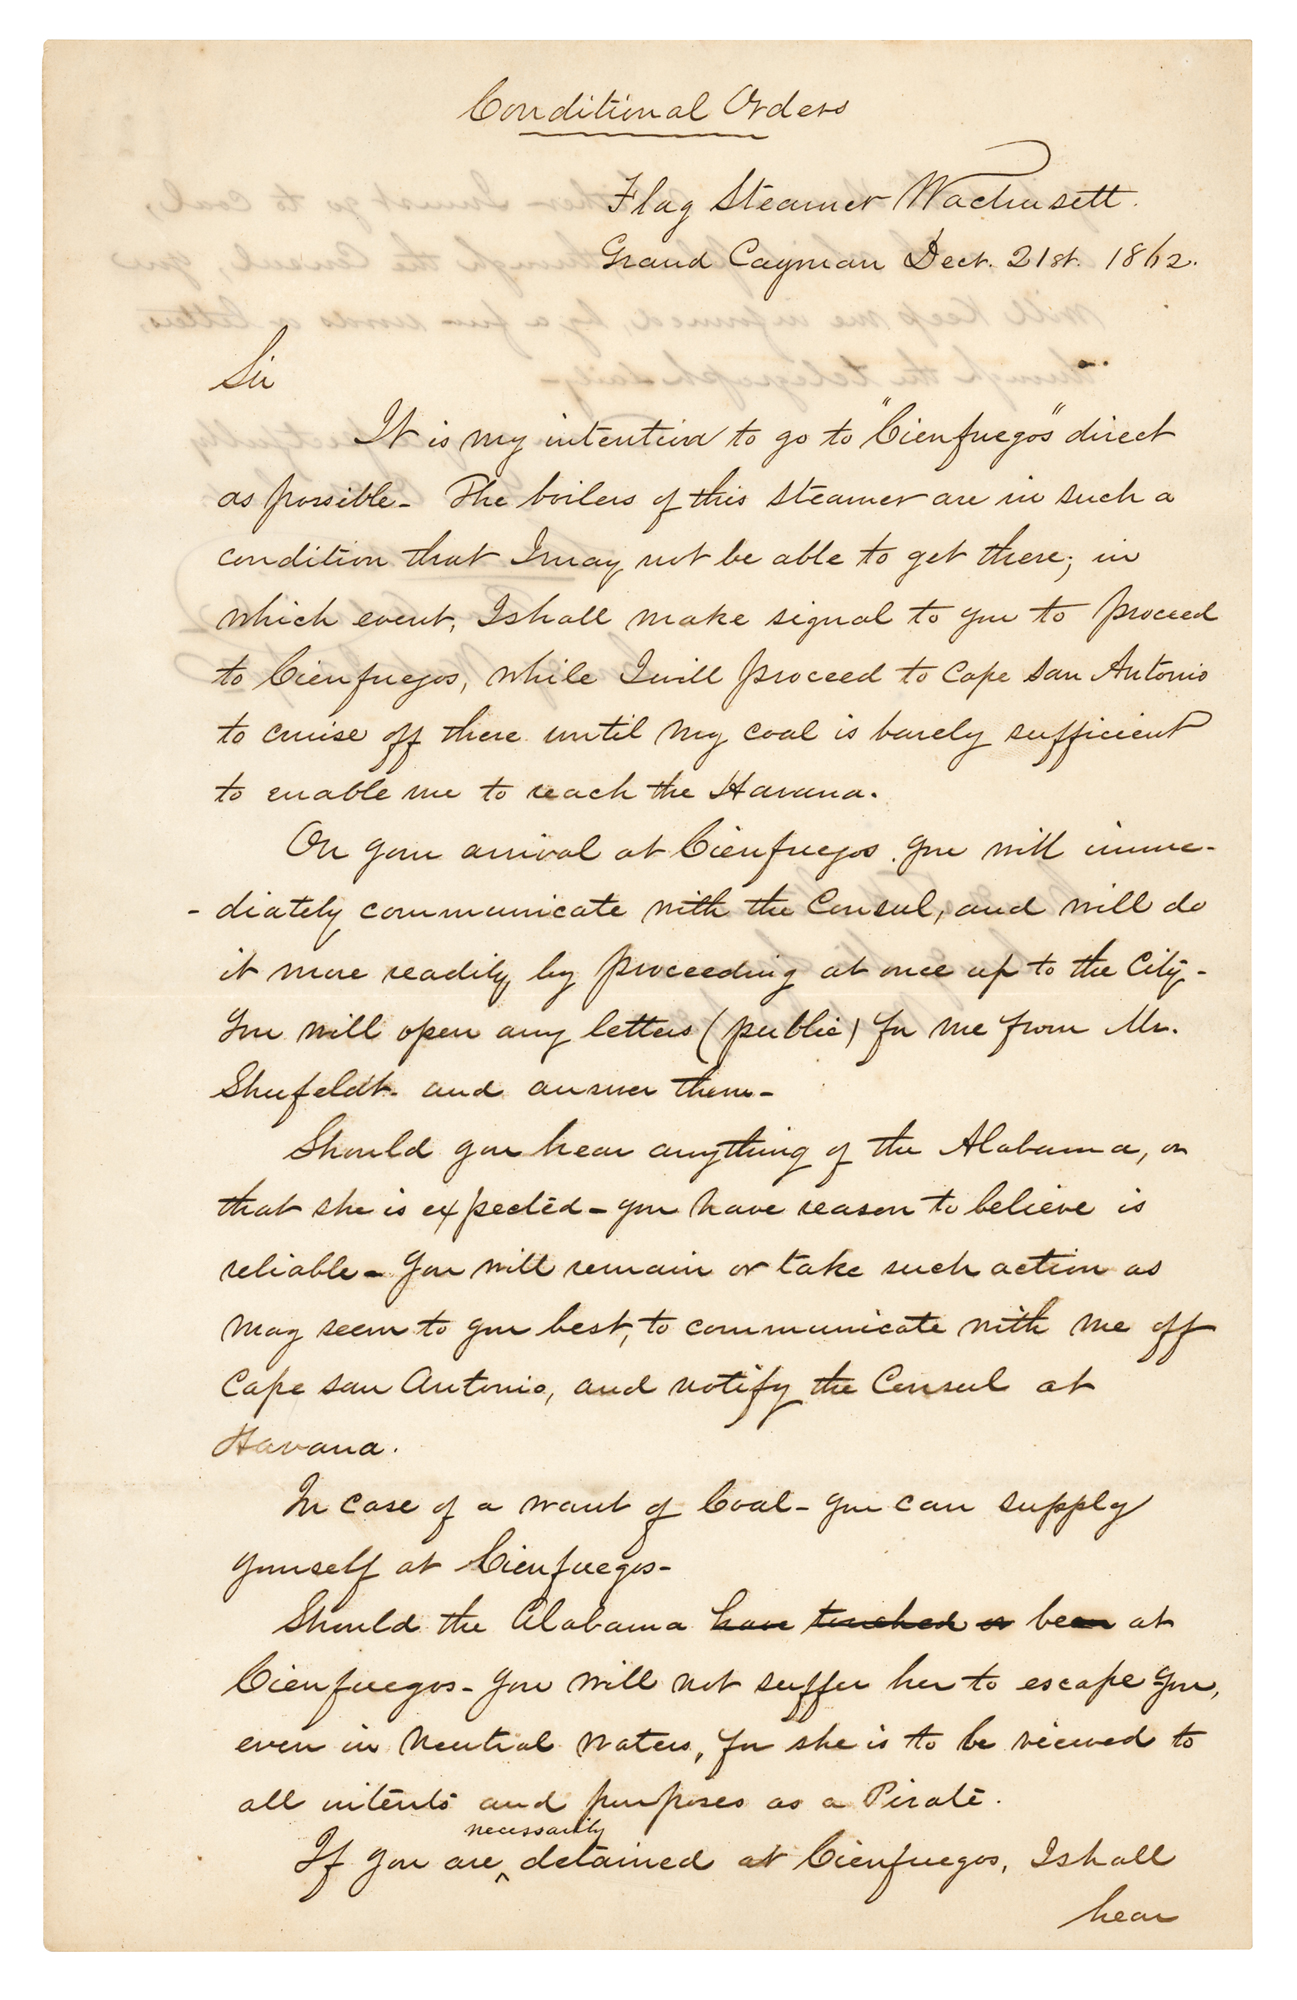 Conditional Orders
Flag Steamer Wachusett.
Grand Cayman Dect. 21st. 1862.
Sir
It is my intention to go to "Cienfuegos" direct
as possible- The boilers of this steamer are in such a
condition that I may not be able to get there; in
which event, I shall make signal to you to proceed
to Cienfuegos, while I will proceed to Cape San Antonio
to cruise off there until my coal is barely sufficient
to enable me to reach the Havana.
On your arrival at Cienfuegos, you will imme-
-diately communicate with the Consul, and will do
it more readily by proceeding at once up to the City-
You will open any letters (public) for me from Mr.
Shufeldt- and answer them-
Should you hear anything of the Alabama, or
that she is expected - you have reason to believe is
reliable - You will remain or take such action as
may seem to you best, to communicate with me off
Cape San Antonio, and notify the Consul at
Havana.
In case of a want of Coal - you can supply
yourself at Cienfuegos-
Should the Alabama have touched or been at
Cienfuegos - you will not suffer her to escape you,
even in Neutral Waters, for she is to be viewed to
all intents and purposes as a Pirate.
necessarily
If you are ^ detained at Cienfuegos, I shall
hear